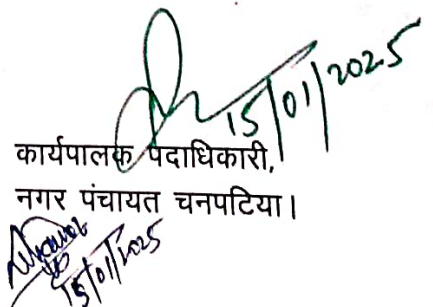 15/01/2025
कार्यपालक पदाधिकारी,
नगर पंचायत चनपटिया।
15/01/2025